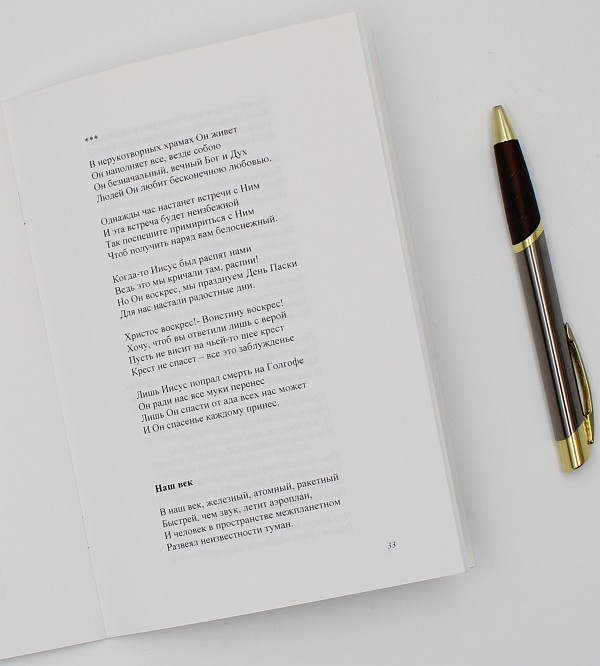 ***
В нерукотворных храмах Он живет
Он наполняет все, везде собою
Он безначальный, вечный Бог и Дух
Людей Он любит бесконечною любовью.
Однажды час настанет встречи с Ним
И эта встреча будет неизбежной
Так поспешите примириться с Ним
Чтоб получить наряд вам белоснежный.
Когда-то Иисус был распят нами
Ведь это мы кричали там, распни!
Но Он воскрес, мы празднуем День Пасхи
Для нас настали радостные дни.
Христос воскрес!- Воистину воскрес!
Хочу, чтоб вы ответили лишь с верой
Пусть не висит на чьей-то шее крест
Крест не спасет – все это заблужденье
Лишь Иисус попрал смерть на Голгофе
Он ради нас все муки перенес
Лишь Он спасти от ада всех нас может
И Он спасенье каждому принес.
Наш век
В наш век, железный, атомный, ракетный
Быстрей, чем звук, летит аэроплан,
И человек в пространстве межпланетном
Развеял неизвестности туман.
33